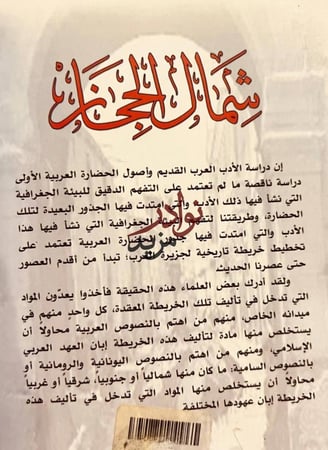 شمال الحجاز
إن دراسة الأدب العرب القديم وأصول الحضارة العربية الأولى
دراسة ناقصة ما لم تعتمد على التفهم الدقيق للبيئة الجغرافية
التي نشأ فيها ذلك الأدب والتي امتدت فيها الجذور البعيدة لتلك
الحضارة، وطريقتنا لتفهم البيئة الجغرافية التي نشأ فيها هذا
الأدب والتي امتدت فيها جذور الحضارة العربية تعتمد على
تخطيط خريطة تاريخية لجزيرة العرب؛ تبدأ من أقدم العصور
حتى عصرنا الحديث.
ولقد أدرك بعض العلماء هذه الحقيقة فأخذوا يعدّون المواد
التي تدخل في تأليف تلك الخريطة المعقدة، كل واحد منهم في
ميدانه الخاص، منهم من اهتم بالنصوص العربية محاولاً أن
يستخلص منها مادة لتأليف هذه الخريطة إبان العهد العربي
الإسلامي، ومنهم من اهتم بالنصوص اليونانية والرومانية أو
بالنصوص السامية: ما كان منها شمالياً أو جنوبياً، شرقياً أو غربياً
محاولاً أن يستخلص منها المواد التي تدخل في تأليف هذه
الخريطة إبان عهودها المختلفة
نوادر
مزيد